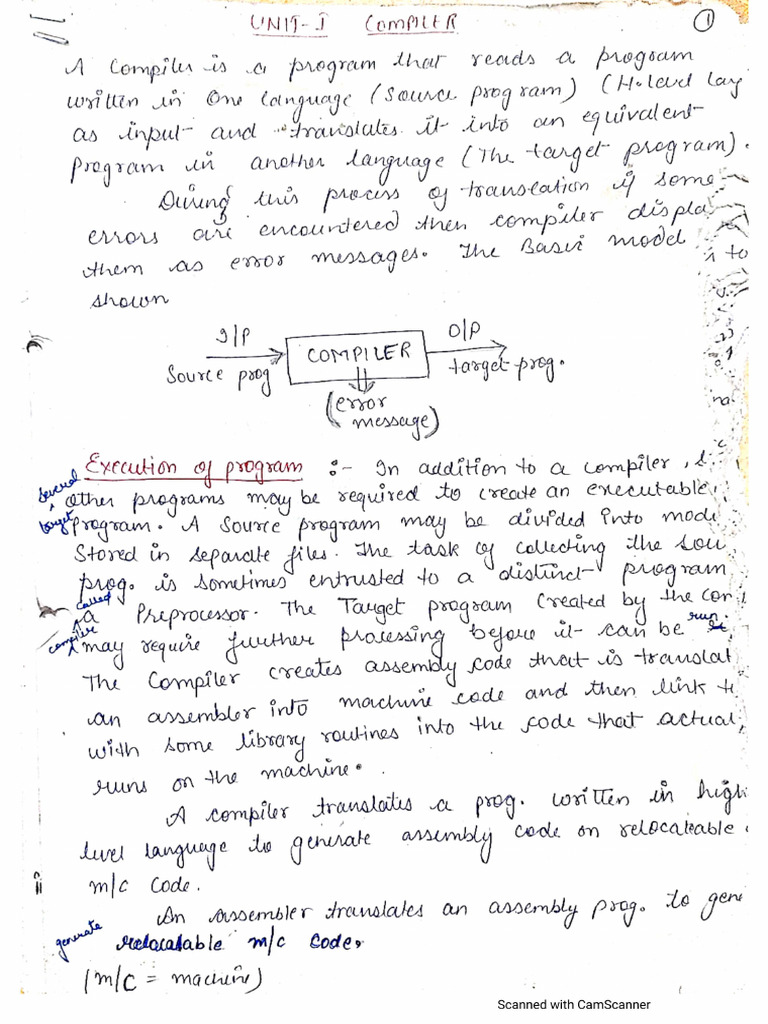 UNIT-I COMPILER
1
A Compiler is a program that reads a program
written in One language (Source program) (H-level lag
as input and translates it into an equivalent
program in another language (The target program).
During this process of translation if some
errors are encountered then compiler displa
them as error messages. The Basic model
to
shown
I/P
O/P
COMPILER
Source prog
target prog.
(error
message)
Execution of program :- In addition to a compiler,
several
other programs may be required to create an executable
target
program. A Source program may be divided into modu
Stored in separate files. The task of collecting the sou
prog. is sometimes entrusted to a distinct program
called
a Preprocessor. The Target program created by the com
compiler
run.
may require further processing before it can be
The Compiler creates assembly code that is translat
an assembler into machine code and then link t
with some library routines into the code that actual
runs on the machine.
A compiler translates a prog. written in high
level language to generate assembly code on relocateable
m/c code.
An assembler translates an assembly prog. to gene
generate
relocatable m/c code.
(m/c = machine)
Scanned with CamScanner